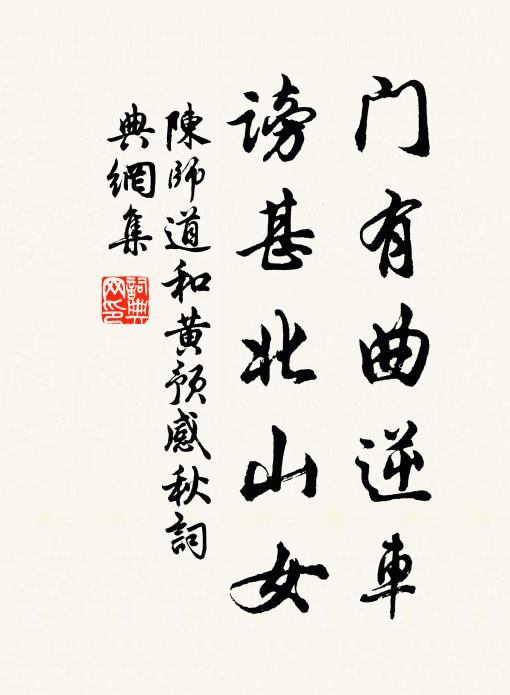 门有曲逆車
謗甚北山女
陳師道和黄預感秋詞
典網集
詞典网印